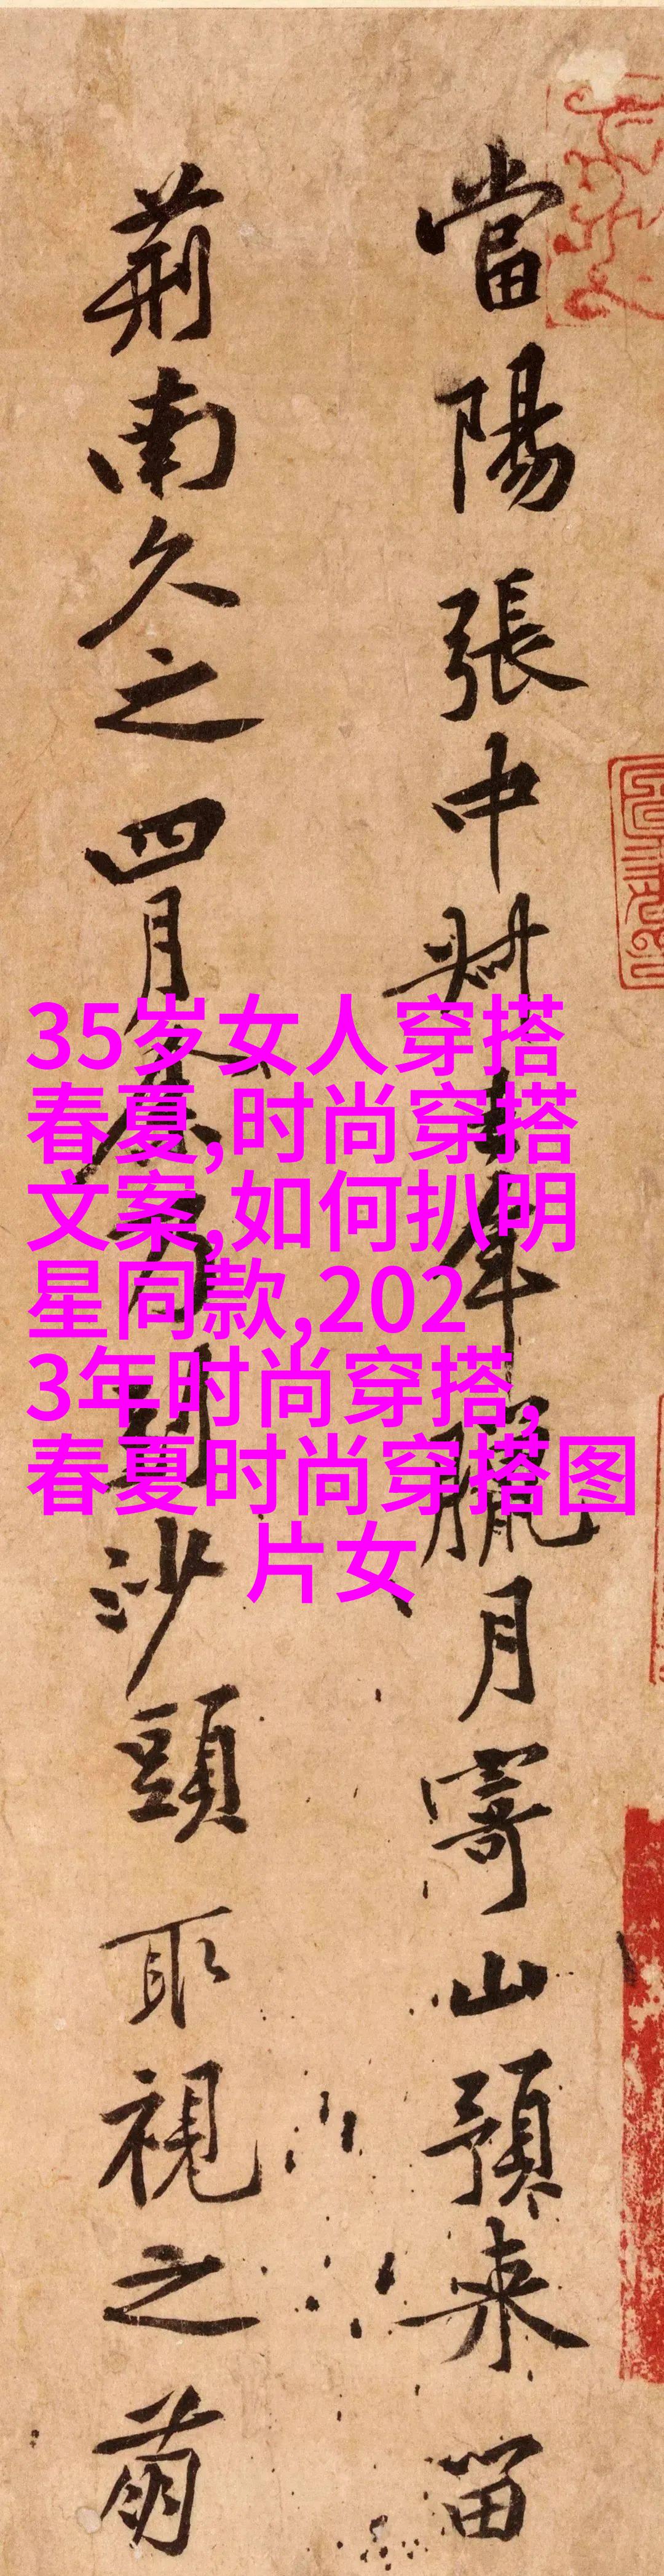 當陽張中叔去年臘月寄山預来留
荊南久之四月到沙頭取視之萌
35岁女人穿搭
春夏,时尚穿搭
文案,如何扒明
星同款,202
3年时尚穿搭,
春夏时尚穿搭图
片女